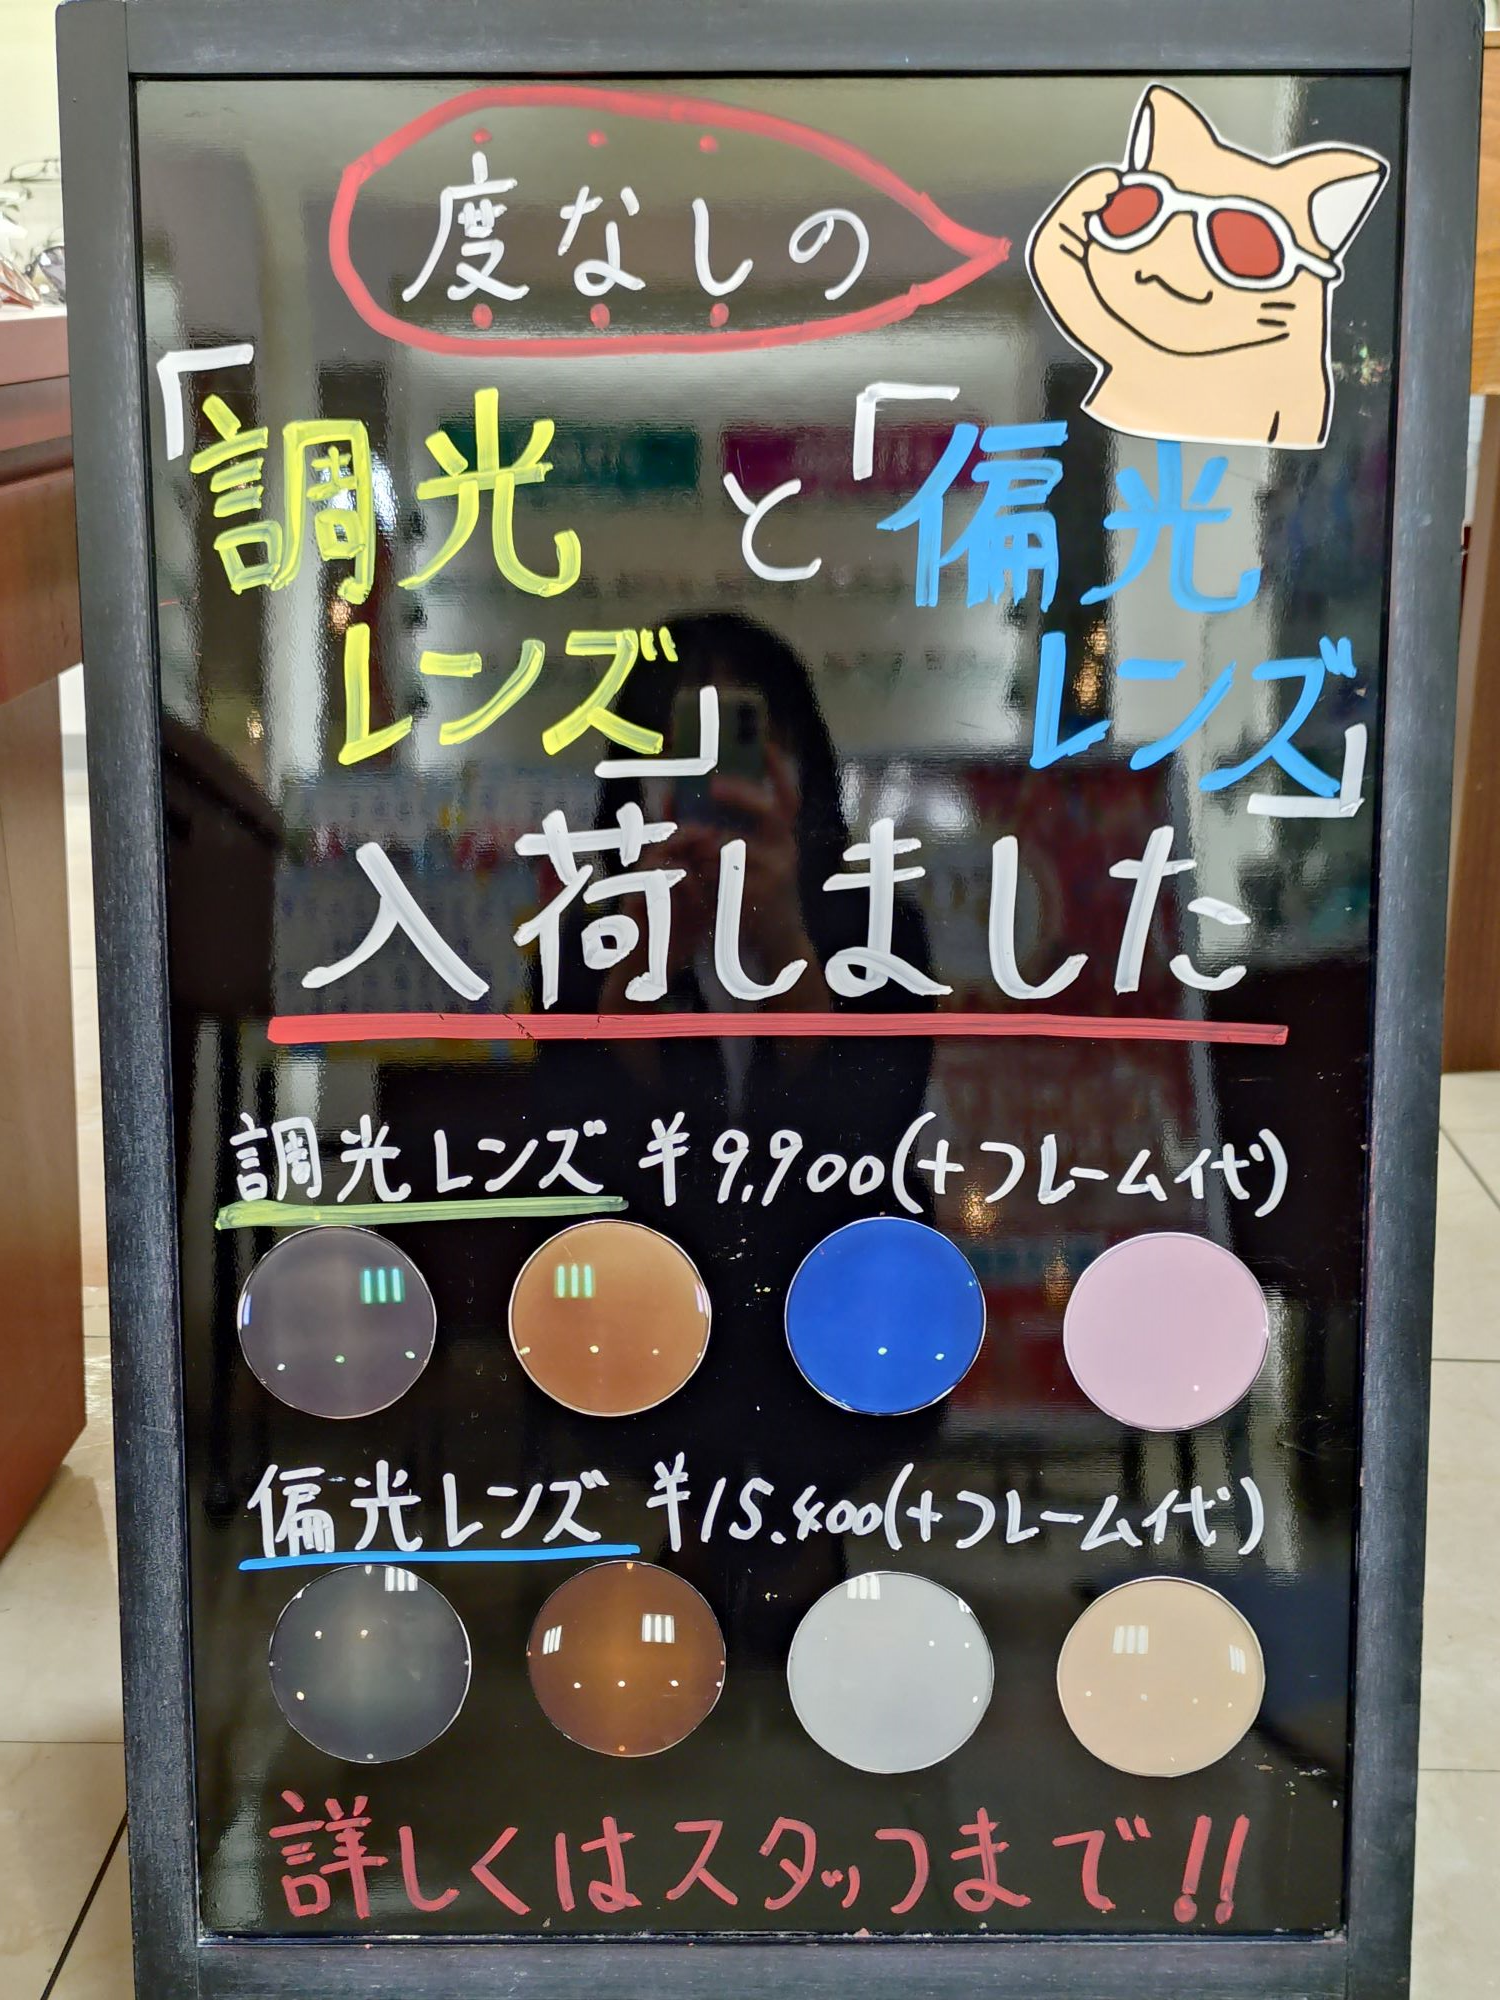 度なしの
「調光レンズ」と「偏光レンズ」
入荷しました
調光レンズ ¥9,900(+フレーム代)
偏光レンズ ¥15,400(+フレーム代)
詳しくはスタッフまで!!